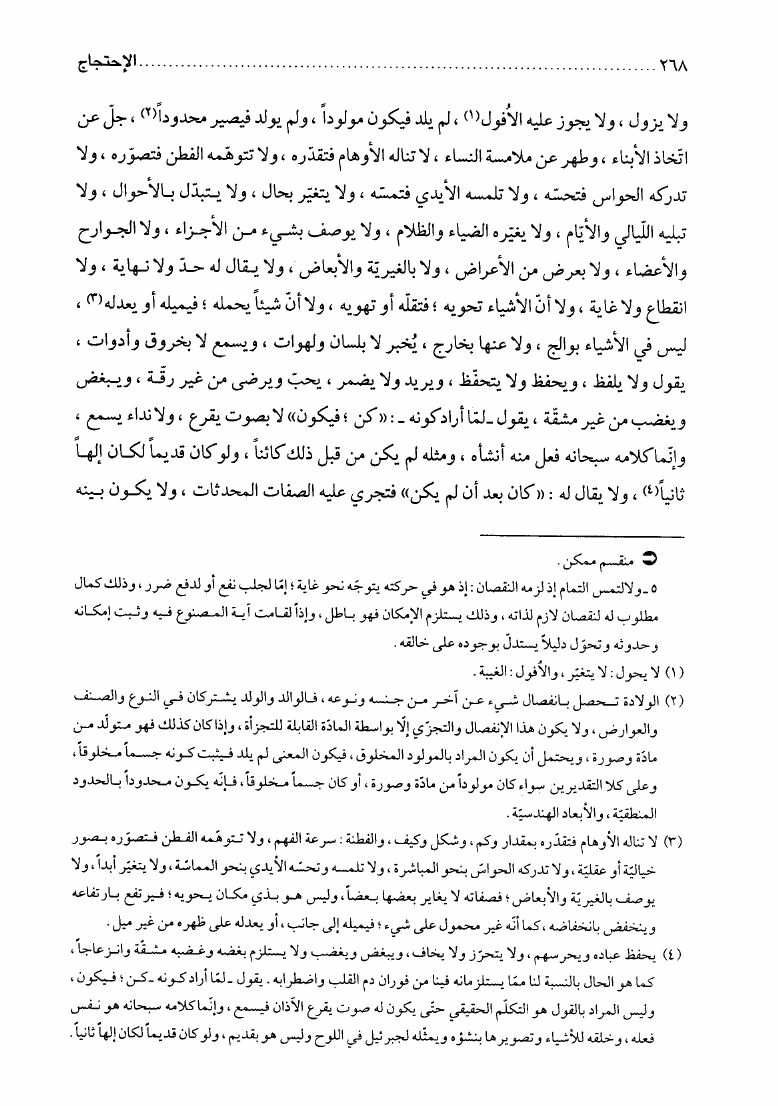 ٢٦٨ ........ الإحتجاج
ولا يزول ، ولا يجوز عليه الاُفول(١) ، لم يلد فيكون مولوداً ، ولم يولد فيصير محدوداً(٢) ، جلّ عن
اتّخاذ الأبناء ، وطهر عن ملامسة النساء ، لا تناله الأوهام فتقدّره ، ولا تتوهّمه الفطن فتصوّره ، ولا
تدركه الحواس فتحسّه ، ولا تلمسه الأيدي فتمسّه ، ولا يتغيّر بحال ، ولا يتبدّل بالأحوال ، ولا
تبليه اللّيالي والأيّام ، ولا يغيّره الضياء والظلام ، ولا يوصف بشيء من الأجزاء ، ولا الجوارح
والأعضاء ، ولا بعرض من الأعراض ، ولا بالغيريّة والأبعاض ، ولا يقال له حدّ ولا نهاية ، ولا
انقطاع ولا غاية ، ولا أنّ الأشياء تحويه ؛ فتقلّه أو تهويه ، ولا أنّ شيئاً يحمله ؛ فيميله أو يعدله(٣) ،
ليس في الأشياء بوالج ، ولا عنها بخارج ، يُخبر لا بلسان ولهوات ، ويسمع لا بخروق وأدوات ،
يقول ولا يلفظ ، ويحفظ ولا يتحفّظ ، ويريد ولا يضمر ، يحبّ ويرضى من غير رقّة ، ويبغض
ويغضب من غير مشقّة ، يقول ـ لمّا أراد كونه ـ : «كن ؛ فيكون» لا بصوت يقرع ، ولا نداء يسمع ،
وإنّما كلامه سبحانه فعل منه أنشأه ، ومثله لم يكن من قبل ذلك كائناً ، ولو كان قديماً لكان إلهاً
ثانياً(٤) ، ولا يقال له : «كان بعد أن لم يكن» فتجري عليه الصفات المحدثات ، ولا يكون بينه
منقسم ممكن .
٥ ـ ولالتمس التمام إذ لزمه النقصان : إذ هو في حركته يتوجّه نحو غاية ؛ إمّا لجلب نفع أو لدفع ضرر ، وذلك كمال
مطلوب له لنقصان لازم لذاته ، وذلك يستلزم الإمكان فهو باطل ، وإذاً لقامت آية المصنوع فيه وثبت إمكانه
وحدوثه وتحوّل دليلاً يستدلّ بوجوده على خالقه .
(١) لا يحول : لا يتغيّر ، والاُفول : الغيبة .
(٢) الولادة تحصل بانفصال شيء عن آخر من جنسه ونوعه ، فالوالد والولد يشتركان في النوع والصنف
والعوارض ، ولا يكون هذا الإنفصال والتجزّي إلّا بواسطة المادّة القابلة للتجزأة ، وإذا كان كذلك فهو متولّد من
مادّة وصورة ، ويحتمل أن يكون المراد بالمولود المخلوق ، فيكون المعنى لم يلد فيثبت كونه جسماً مخلوقاً ،
وعلى كلا التقديرين سواء كان مولوداً من مادّة وصورة ، أو كان جسماً مخلوقاً ، فإنّه يكون محدوداً بالحدود
المنطقيّة ، والأبعاد الهندسيّة .
(٣) لا تناله الأوهام فتقدّره بمقدار وكم ، وشكل وكيف ، والفطنة : سرعة الفهم ، ولا تتوهّمه الفطن فتصوّره بصور
خياليّة أو عقليّة ، ولا تدركه الحواسّ بنحو المباشرة ، ولا تلمسه وتحسّه الأيدي بنحو المماسّة ، ولا يتغيّر أبداً ، ولا
يوصف بالغيريّة والأبعاض ؛ فصفاته لا يغاير بعضها بعضاً ، وليس هو بذي مكان يحويه ؛ فيرتفع بارتفاعه
وينخفض بانخفاضه ، كما أنّه غير محمول على شيء ؛ فيميله إلى جانب ، أو يعدله على ظهره من غير ميل .
(٤) يحفظ عباده ويحرسهم ، ولا يتحرّز ولا يخاف ، ويبغض ويغضب ولا يستلزم بغضه وغضبه مشقّة وانزعاجاً ،
كما هو الحال بالنسبة لنا ممّا يستلزمانه فينا من فوران دم القلب واضطرابه . يقول ـ لمّا أراد كونه ـ كن ؛ فيكون ،
وليس المراد بالقول هو التكلّم الحقيقي حتّى يكون له صوت يقرع الآذان فيسمع ، وإنّما كلامه سبحانه هو نفس
فعله ، وخلقه للأشياء وتصويرها بنشؤه ويمثّله لجبرئيل في اللوح وليس هو بقديم ، ولو كان قديماً لكان إلهاً ثانياً .